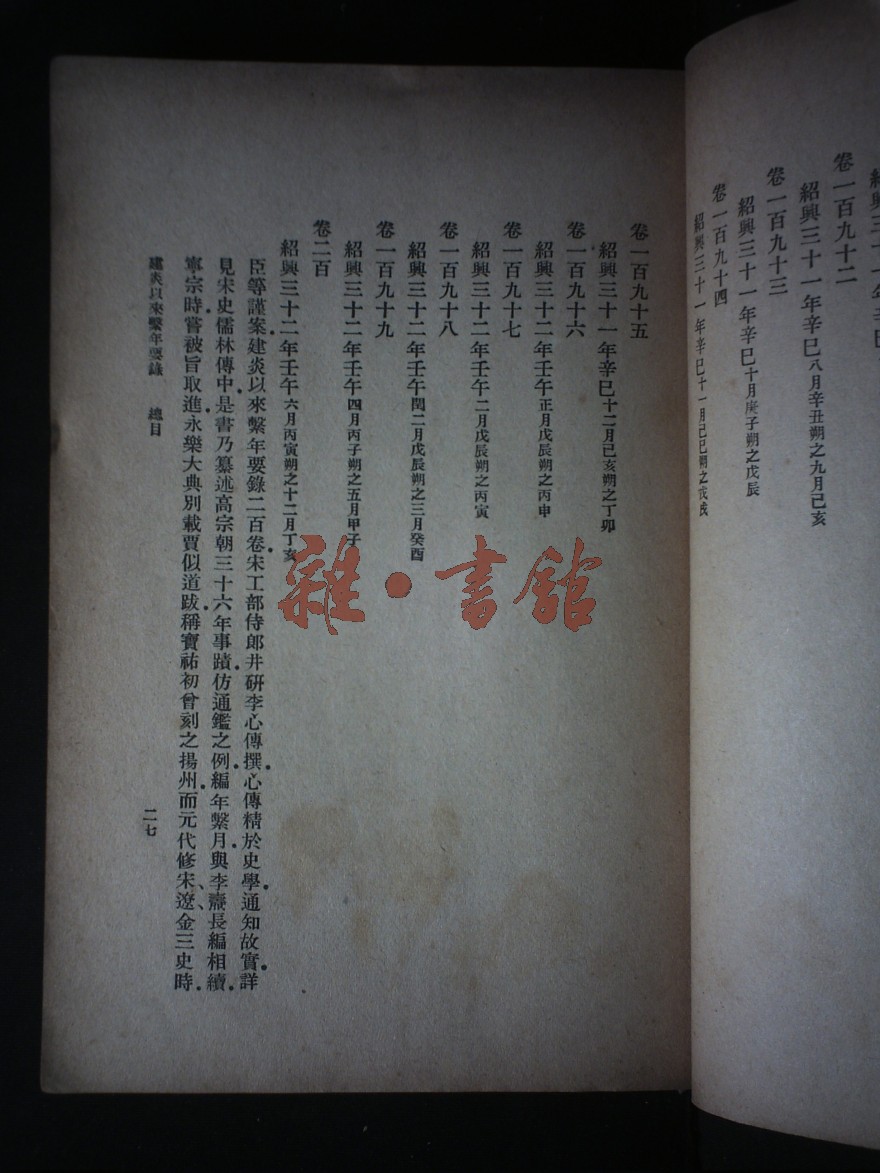 紹興三十一年辛巳
卷一百九十二
紹興三十一年辛巳八月辛丑朔之九月己亥
卷一百九十三
紹興三十一年辛巳十月庚子朔之戊辰
卷一百九十四
紹興三十一年辛巳十一月己巳朔之戊戌
卷一百九十五
紹興三十一年辛巳十二月己亥朔之丁卯
卷一百九十六
紹興三十二年壬午正月戊辰朔之丙申
卷一百九十七
紹興三十二年壬午二月戊辰朔之丙寅
卷一百九十八
紹興三十二年壬午閏二月戊辰朔之三月癸酉
卷一百九十九
紹興三十二年壬午四月丙子朔之五月甲子
卷二百
紹興三十二年壬午六月丙寅朔之十二月丁亥
臣等謹案建炎以來繫年要錄二百卷宋工部侍郎井研李心傳撰心傳精於史學通知故實詳
見宋史儒林傳中是書乃纂述高宗朝三十六年事蹟仿通鑑之例編年繫月與李燾長編相續
寧宗時嘗被旨取進永樂大典別載賈似道跋稱寶祐初曾刻之揚州而元代修宋遼金三史時
建炎以來繫年要錄 總目
二七
雜·書館